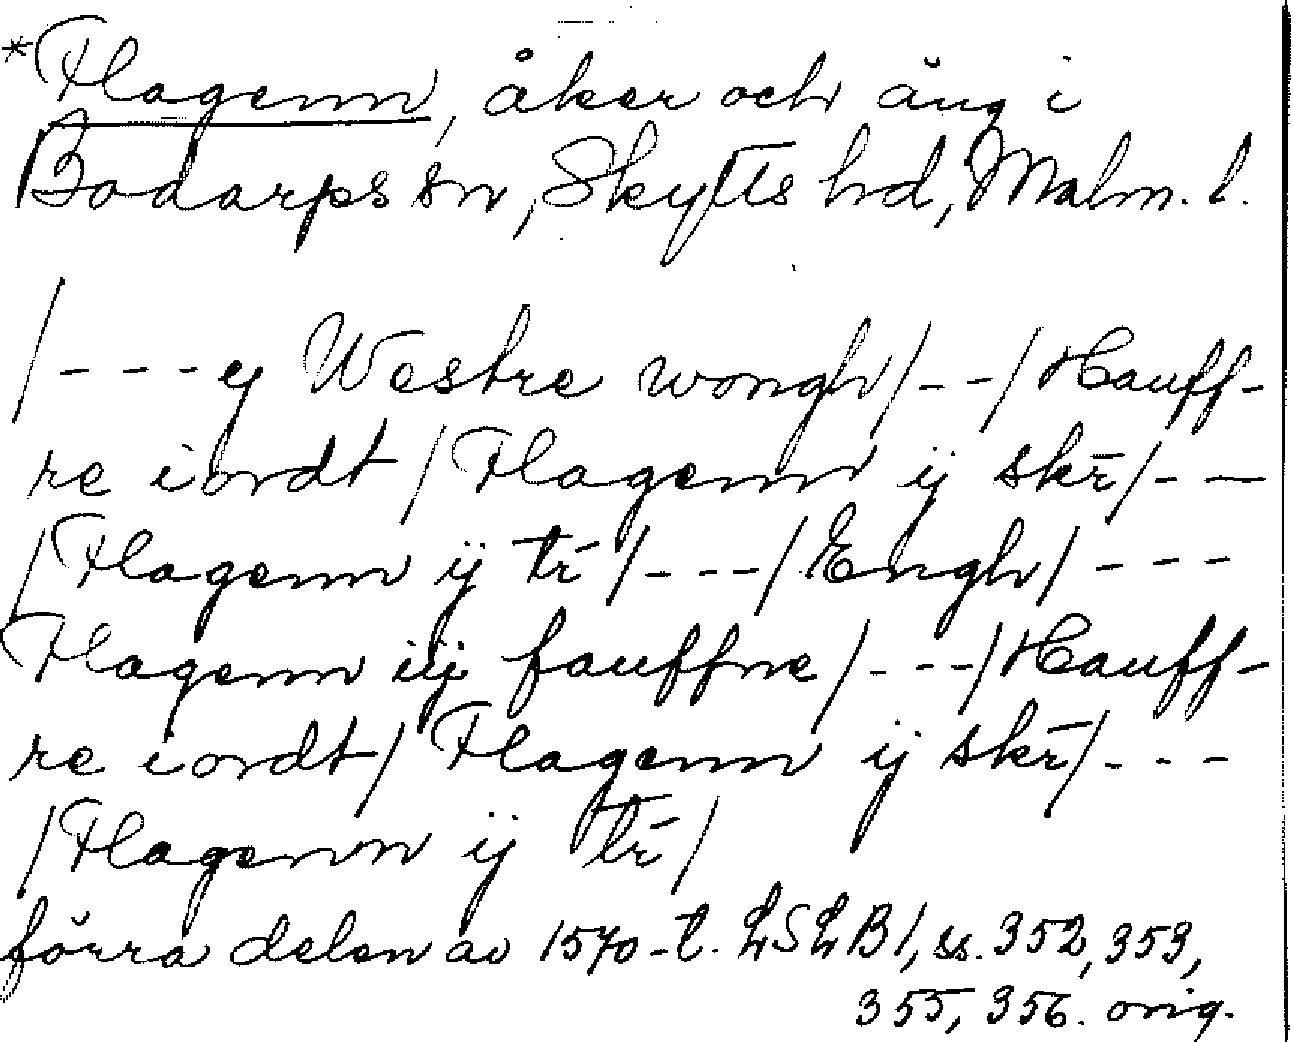 *Flagenn, åker och äng i
Bodarps sn, Skytts hd, Malm. l.
/---ij Westre wongh/--/Hauff-
re iordt/Flagenn ij skr̄/--
/Flagenn ij tr̄/---/Engh/---
Flagenn iij fauffne/---/Hauff-
re iordt/Flagenn ij skr̄/---
/Flagenn ij tr̄/
förra delen av 1570-t. LSLB1, ss. 352, 353,
355, 356. orig.